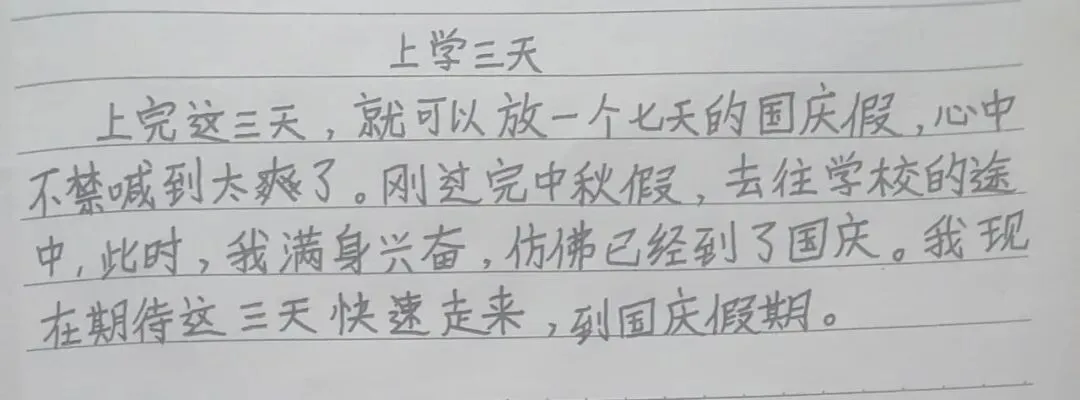 上学三天
上完这三天，就可以放一个七天的国庆假，心中
不禁喊到太爽了。刚过完中秋假，去往学校的途
中，此时，我满身兴奋，仿佛已经到了国庆。我现
在期待这三天快速走来，到国庆假期。